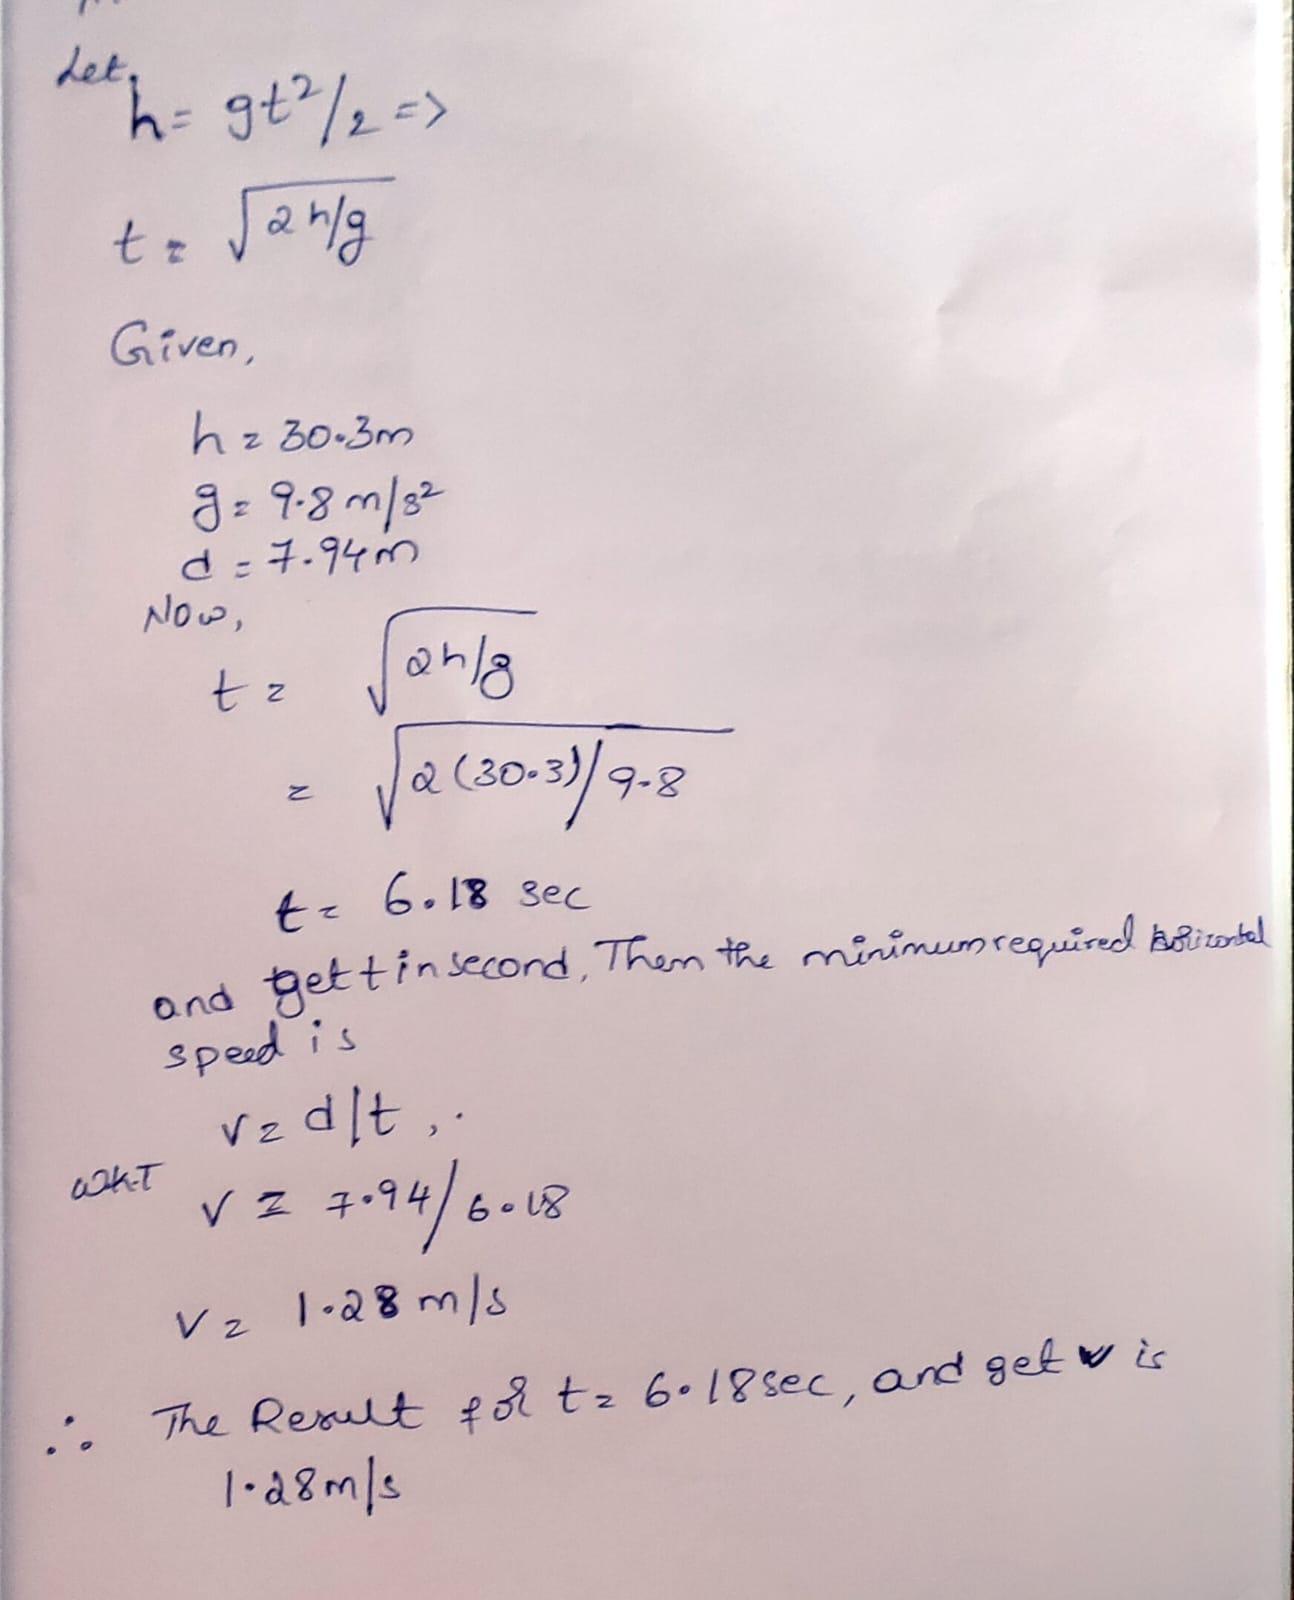 Let,
h = gt²/2 =>
t = √2h/g
Given,
h = 30.3m
g = 9.8 m/s²
d = 7.94m
Now,
t = √2h/g
= √2(30.3)/9.8
t = 6.18 sec
and get t in second, Then the minimum required horizontal
speed is
v = d/t,.
WKT
v = 7.94/6.18
v = 1.28 m/s
∴ The Result for t = 6.18sec, and get v is
1.28m/s